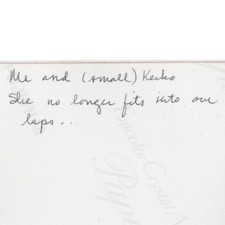 Me and (small) Keiko
She no longer fits into our
laps...